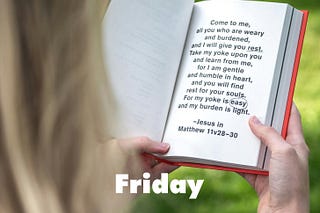 Come to me,
all you who are weary
and burdened,
and I will give you rest.
Take my yoke upon you
and learn from me,
for I am gentle
and humble in heart,
and you will find
rest for your souls.
For my yoke is easy
and my burden is light.
~Jesus in
Matthew 11v28-30
Friday